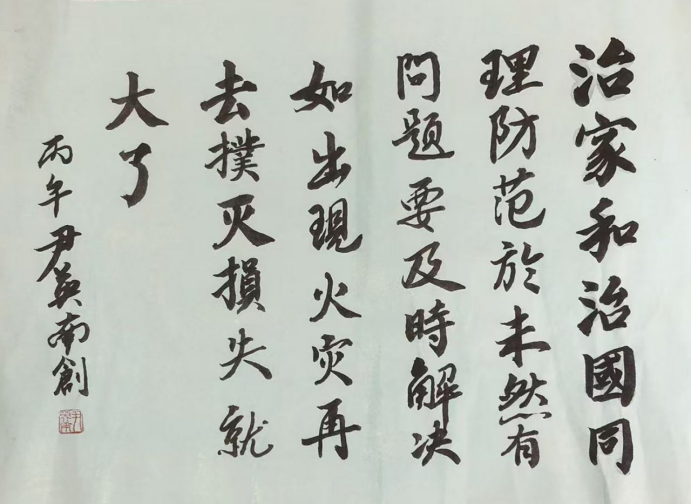 治家和治國同
理防范於未然有
問題要及時解决
如出現火灾再
去撲灭損失就
大了
丙午尹英南創